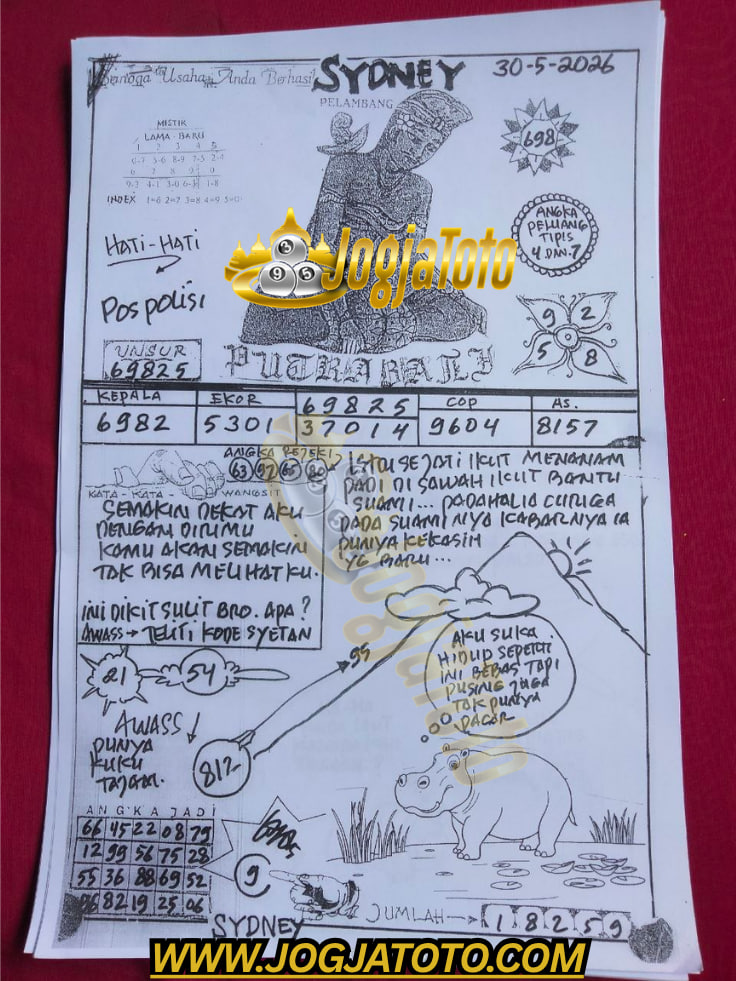 Semoga Usaha Anda Berhasil
SYDNEY
30-5-2026
PELAMBANG
MISTIK
LAMA - BARU
1 2 3 4 5
0-7 5-6 8-9 7-5 2-4
6 7 8 9
4-1 3-0 1-8
INDEX 1=6 2=7 3=8 4=9 5=0
698
ANGKA
PELUANG
TIPIS
4 DAN.7
HATI-HATI
POS POLISI
JogjaToto
8
9 5
UNSUR
69825
PUTRA BALI
9 2
5 8
KEPALA EKOR 69825 COP AS.
6982 5301 37014 9604 8157
ANGKA REJEKI
63 92 65 80
KATA - KATA - WANGSIT
SEMAKIN DEKAT AKU
DENGAN DIRIMU
KAMU AKAN SEMAKIN
TAK BISA MELIHATKU.
INI DIKIT SULIT BRO. APA?
AWASS → TELITI KODE SYETAN
ISTRI SEJATI IKUT MENANAM
PADI DI SAWAH IKUT BANTU
SUAMI... PADAHAL IA CURIGA
PADA SUAMI NYA KABARNYA IA
PUNYA KEKASIH
YG BARU...
21 54
95
AKU SUKA
HIDUP SEPERTI
INI BEBAS TAPI
PUSING JUGA
TAK PUNYA
PACAR
AWASS
PUNYA
KUKU
TAJAM.
812
ANGKA JADI
66 45 22 08 79
12 99 56 75 28
55 36 88 69 52
96 82 19 25 06
9
JUMLAH → 1 8 2 5 9
SYDNEY
JogjaToto
WWW.JOGJATOTO.COM